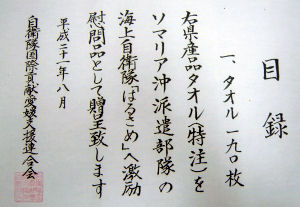 目録
一、タオル一九〇枚
右県産品タオル(特注)を
ソマリア沖派遣部隊の
海上自衛隊「はるさめ」へ激励
慰問品として贈呈致します
平成二十一年八月
自衛隊国際貢献愛媛支援連合会